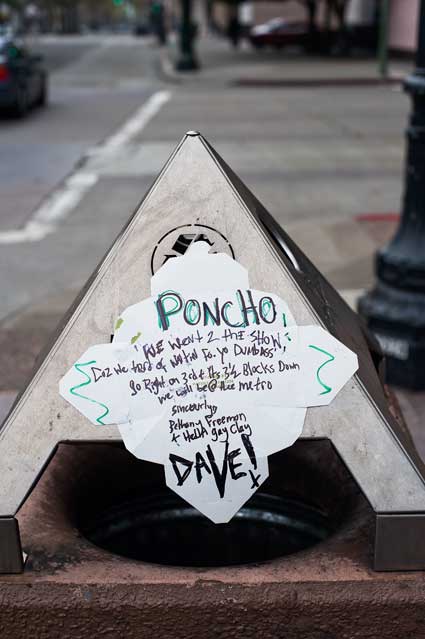 PONCHO,
"WE WENT 2 THE SHOW",
CUZ WE TIRED OF WAITIN FO YO DUMBASS"
GO RIGHT ON 2nd & ITS 3½ BLOCKS DOWN
WE WILL BE @ the metro
SINCERELY,
Bethany Freemon
+ Hella gay Clay
DAVE!